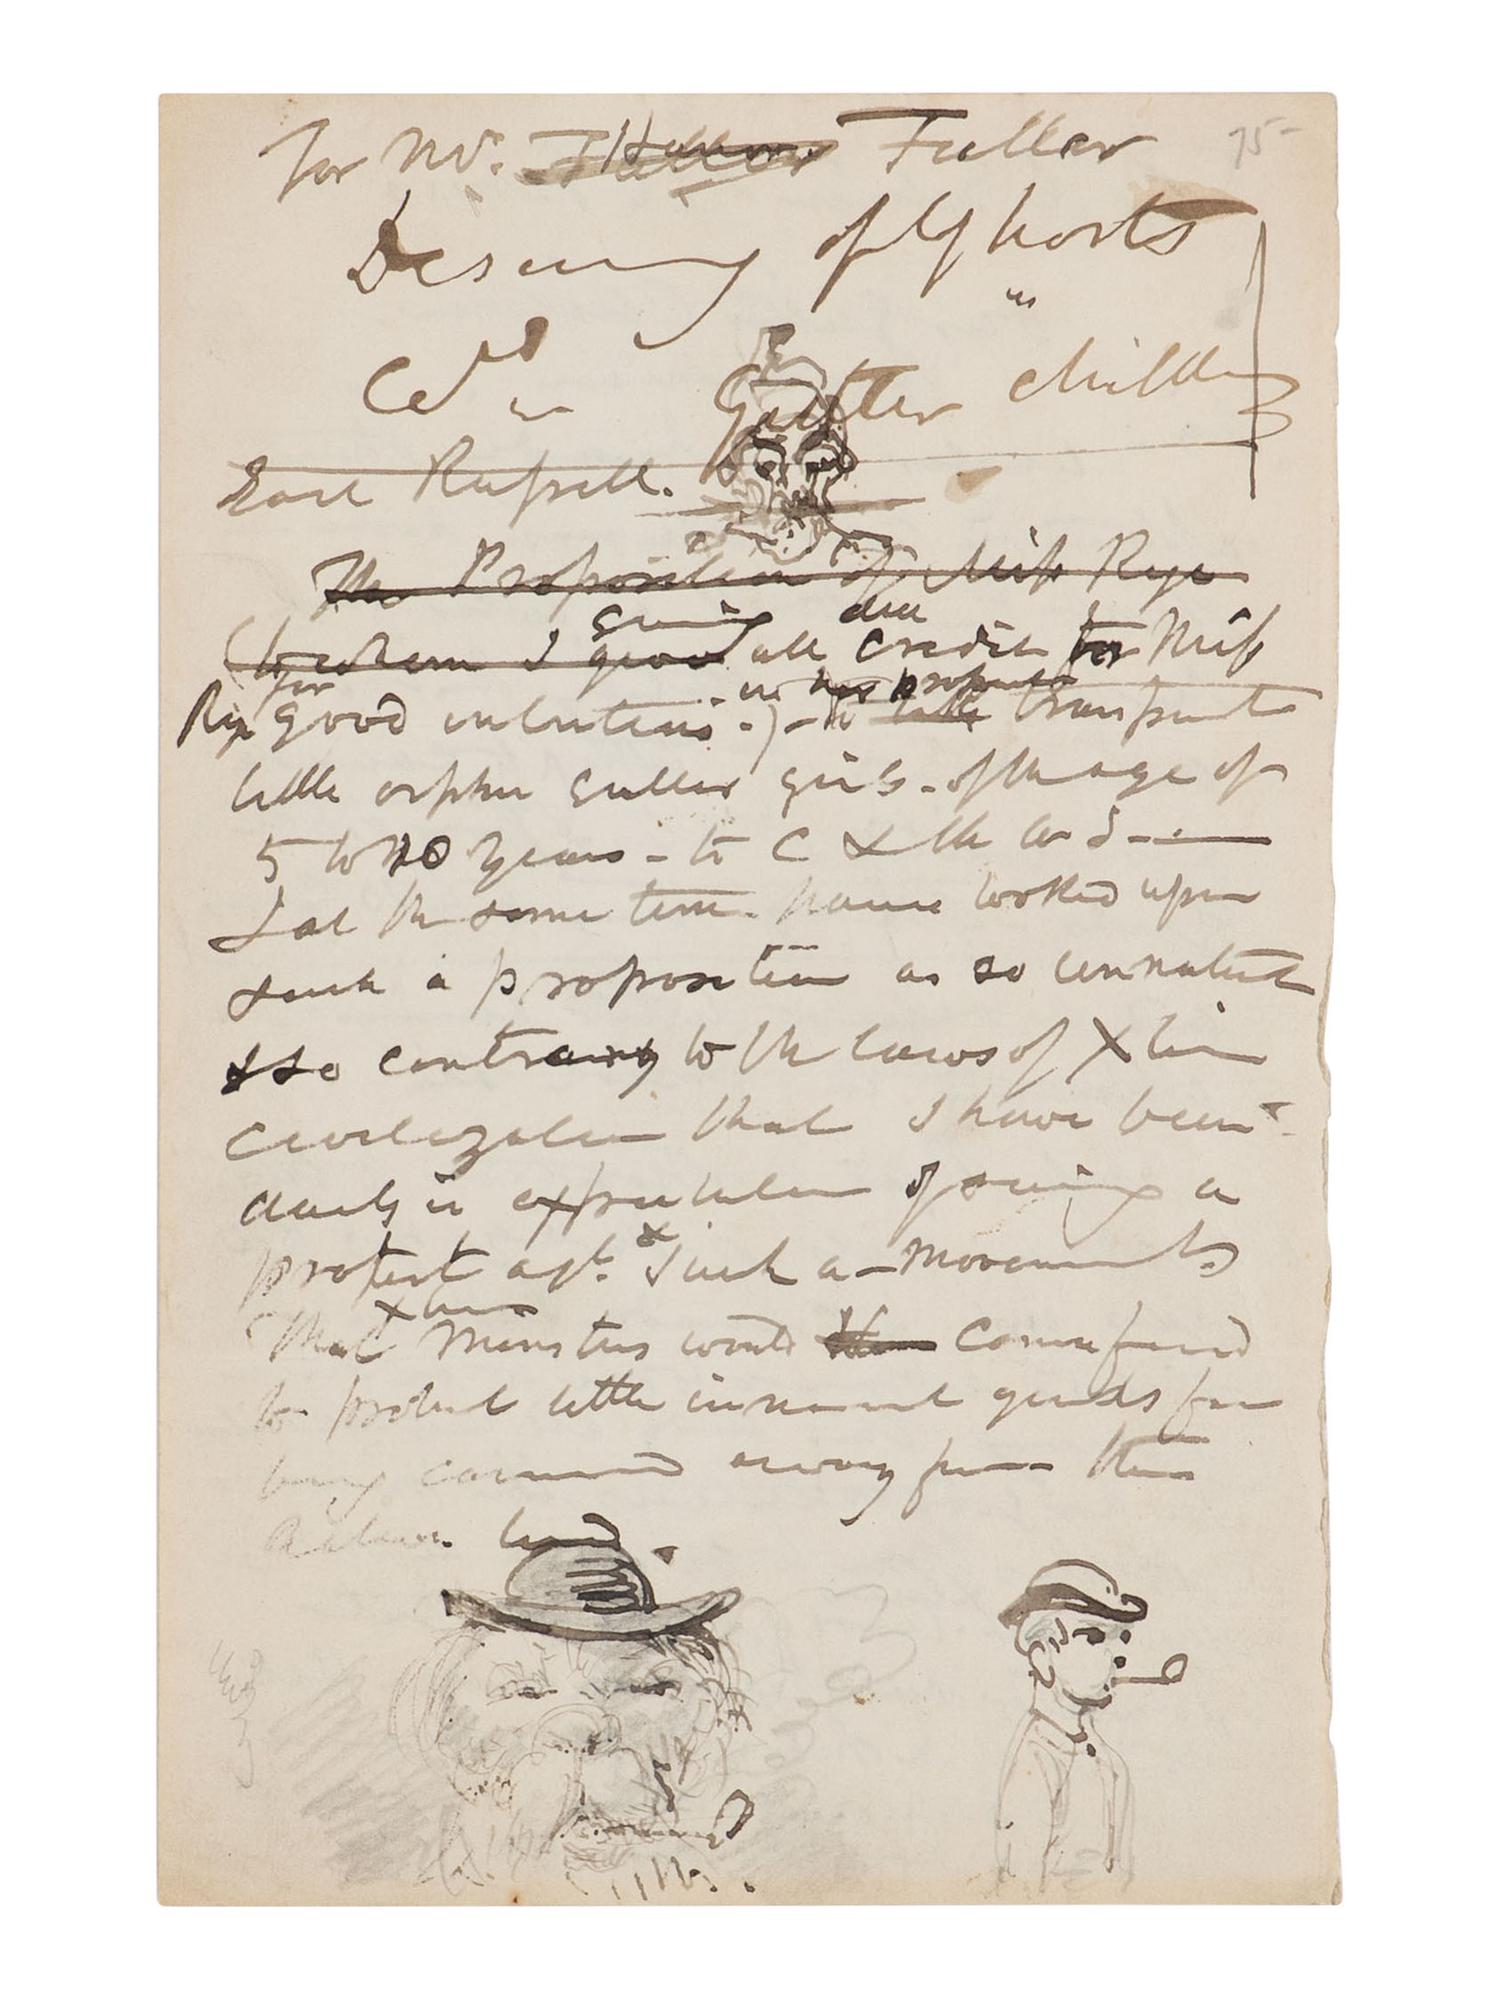 For Mr. Fuller 75-
of
in
Gutter children
Earl Russell.
The Proposition of Miss Rye
giving due
(to whom I give all credit for Miss
for
Rye good intentions.) - to transport
little orphan Gutter girls - of the age of
5 to 10 years - to C & the
& at the same time have looked upon
such a proposition as so unnatural
& so contrary to the laws of Xtian
Civilization that I have been
daily in expectation of seeing a
protest agst. such a movement &
Xtian
That Ministers would come forward
to protect little innocent girls from
being carried away from their
land.